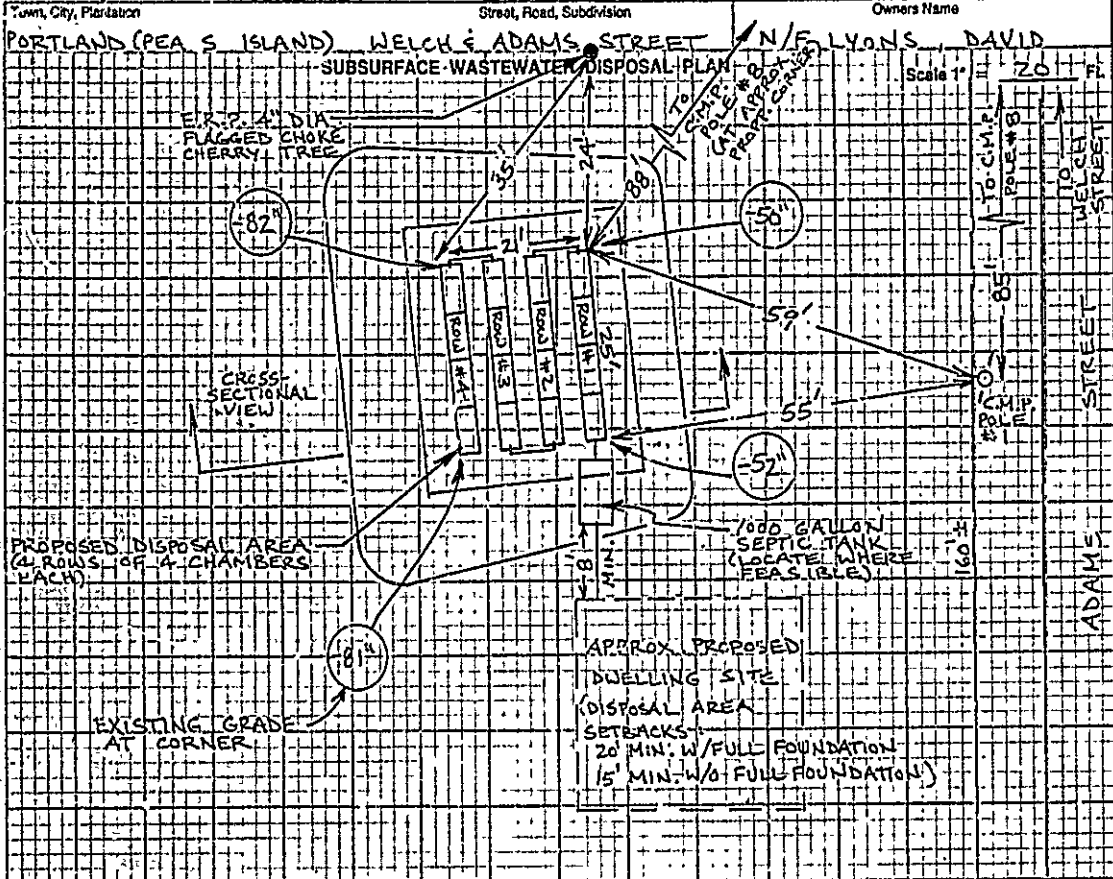 Town, City, Plantation
Street, Road, Subdivision
Owners Name
PORTLAND (PEA S ISLAND)
WELCH & ADAMS STREET
N/F LYONS, DAVID
SUBSURFACE WASTEWATER DISPOSAL PLAN
Scale 1" = 20 Ft.
E.R.P. 4" DIA.
FLAGGED CHOKE
CHERRY TREE
TO
C.M.P.
POLE #8
(AT APPROX
PROP. CORNER
35'
24'
88'
-82"
-50"
21'
ROW #4
ROW #3
ROW #2
ROW #1
25'
59'
55'
TO C.M.P.
POLE #8
85'
TO
WELCH
STREET
C.M.P.
POLE
CROSS-
SECTIONAL
VIEW
-52"
PROPOSED DISPOSAL AREA
(4 ROWS OF 4 CHAMBERS
EACH)
1000 GALLON
SEPTIC TANK
(LOCATE WHERE
FEASIBLE)
8'
MIN
160'±
ADAMS STREET
-81"
EXISTING GRADE
AT CORNER
APPROX. PROPOSED
DWELLING SITE
(DISPOSAL AREA
SETBACKS:
20' MIN. W/FULL FOUNDATION
15' MIN. W/O FULL FOUNDATION)